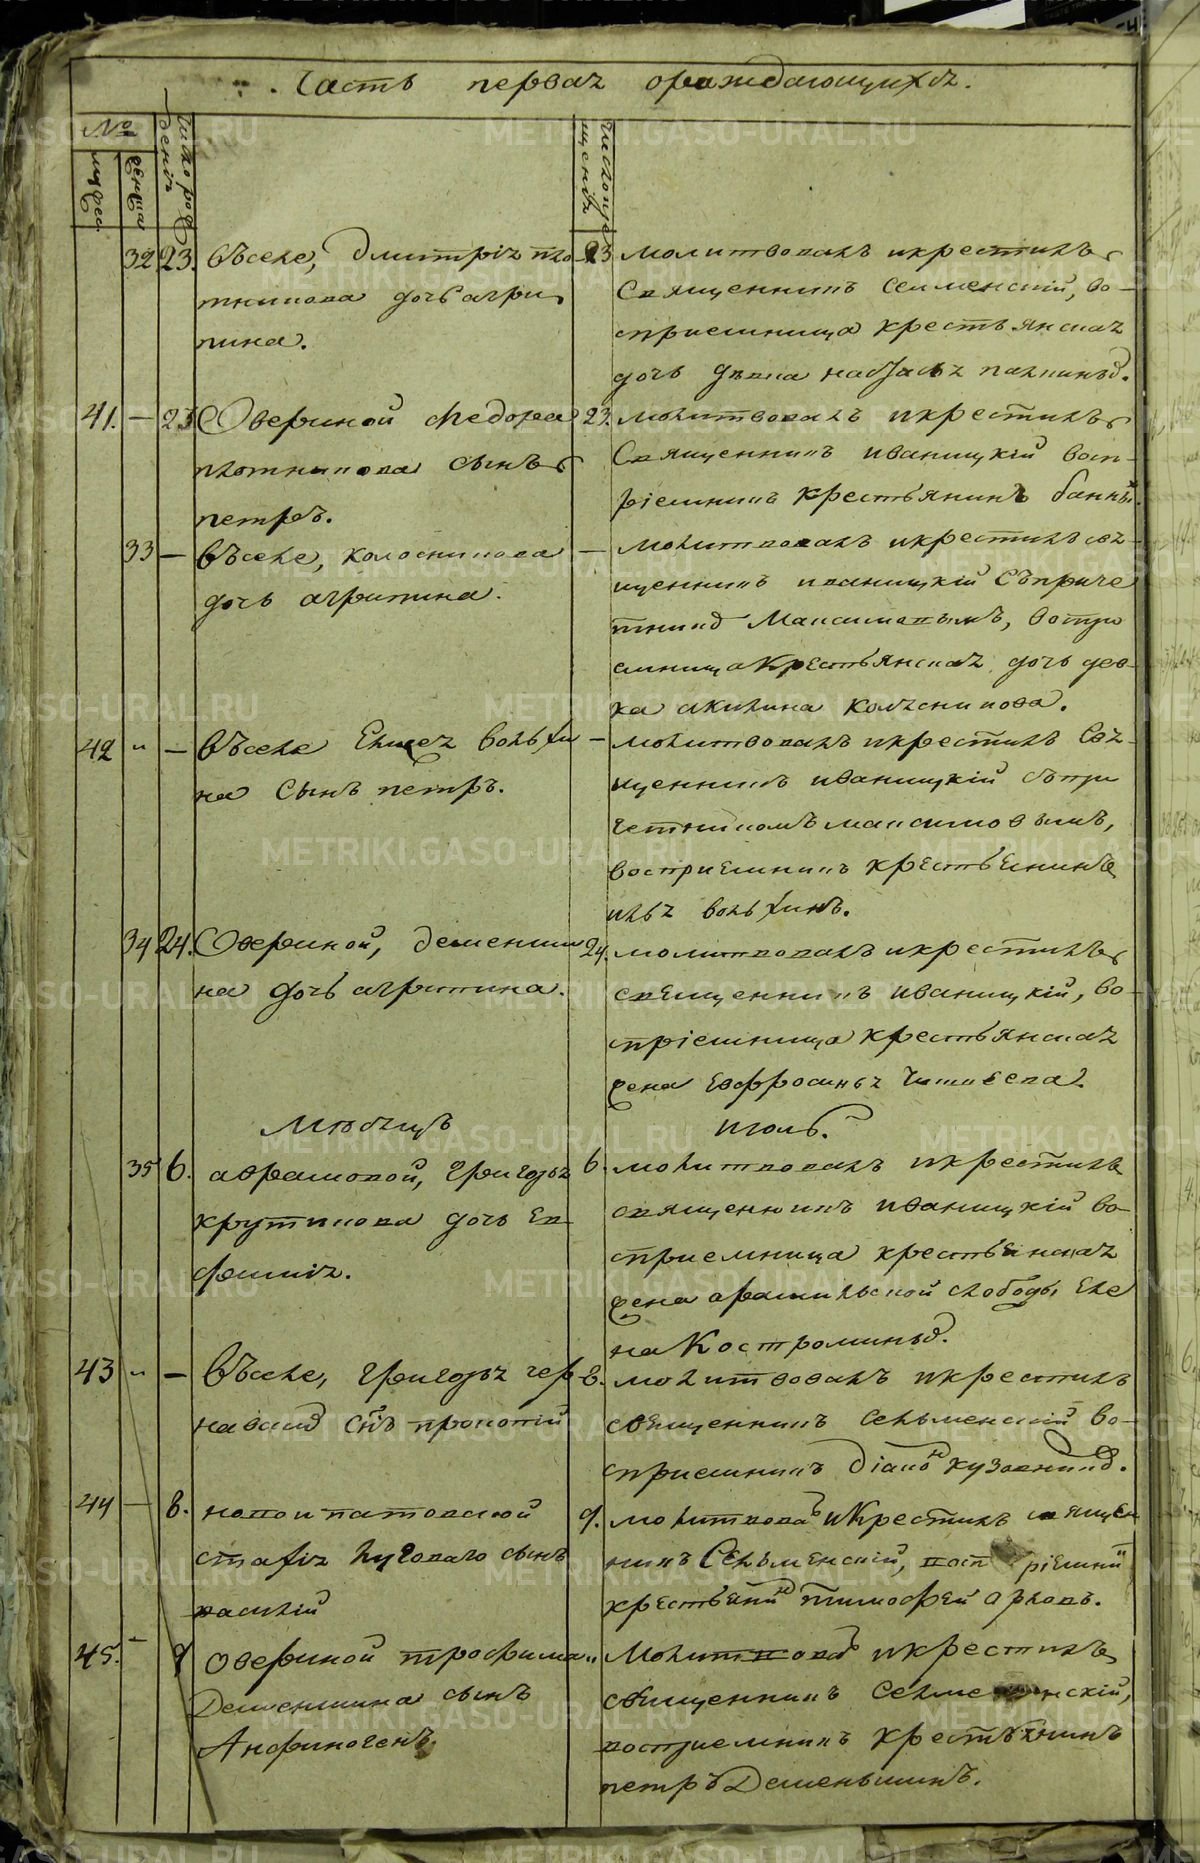 Часть первая ораждающихся.
№
мужес
женска
Число рож
денія
Число кре
щенія
32 23. въселе, Дмитрія пло
тникова дочь агри
пина.
23 молитвовалъ икрестилъ
Священникъ Селменскій, во-
сприемница крестьянская
дочь девка
41. — 23 Озериной Федора
плотникова сынъ
петръ.
23. молитвовалъ икрестилъ
Священникъ иваницкій восп-
ріемникъ крестьянинъ
33 — въселе, колосникова
дочь агрипина.
— молитвовалъ икрестилъ свя-
щенникъ иваницкій Съприче
тник Максимовымъ, воспри
емница Крестьянская дочь дев-
ка акилина колясникова.
42 " — въселе Елисея вольхи
на Сынъ петръ.
— молитвовалъ икрестилъ Свя-
щенникъ иваницкій съпри
четникомъ максимовымъ,
восприемникъ крестьенинъ
илья вольхинъ.
34 24. Озериной, деменши
на дочь агрипина.
24. молитвовалъ икрестилъ
свещенникъ иваницкій, во-
спріемница крестьянская
жена Евфросинья
Месецъ июль.
35 6. аврамовой, григорья
крутикова дочь Ев
фимия.
6. молитвовалъ икрестилъ
священникъ иваницкій во-
сприемница крестьенская
жена арамильской слободы Еле
на Костроминыд.
43 " — въселе, григорья чер
навский снъ прокопий
8. молитвовалъ икрестилъ
свещенникъ Сельменский во-
сприемникъ діаконъ кузовников.
44 — 8. новоипатовской
стафия пуговаго сынъ
василій
9. молитвовалъ иКрестилъ священ
никъ Сельменскій, воспріемникъ
крестьенинъ тимофей орловъ.
45. — 9 озериной трофима
Деменшина сынъ
Анфиногенъ.
" Молитвовалъ икрестилъ
свещенникъ Селменскій,
восприемникъ крестьянинъ
петръ Деменьшинъ.
METRIKI.GASO-URAL.RU